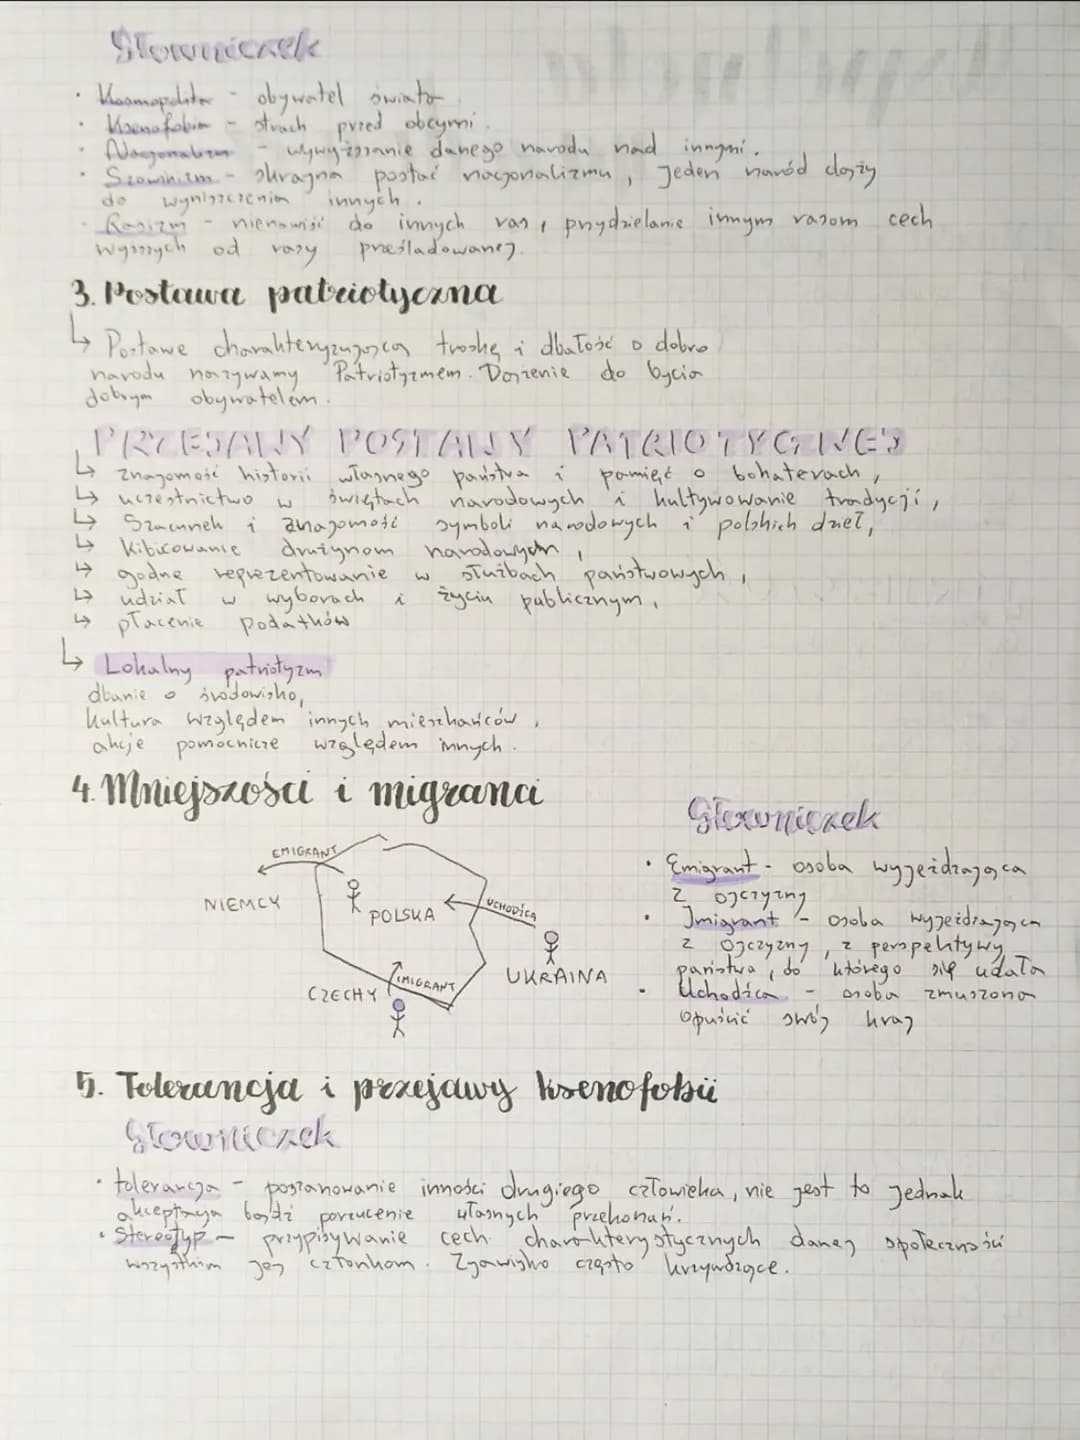 Słowniczek
• Kosmopolita - obywatel świata
• Ksenofobia - strach przed obcymi.
• Nacjonalizm - wywyższanie danego narodu nad innymi.
• Szowinizm - skrajna postać nacjonalizmu, jeden naród dąży
do wyniszczenia innych.
• Rasizm - nienawiść do innych ras, przydzielanie innym rasom cech
wyższych od rasy prześladowanej.
3. Postawa patriotyczna
↳ Postawę charakteryzującą troskę i dbałość o dobro
narodu nazywamy Patriotyzmem. Dążenie do bycia
dobrym obywatelem.
PRZEJAWY POSTAWY PATRIOTYCZNEJ
↳ znajomość historii własnego państwa i pamięć o bohaterach,
↳ uczestnictwo w świętach narodowych i kultywowanie tradycji,
↳ Szacunek i znajomość symboli narodowych i polskich dzieł,
↳ kibicowanie drużynom narodowym,
↳ godne reprezentowanie w służbach państwowych,
↳ udział w wyborach i życiu publicznym,
↳ płacenie podatków
↳ Lokalny patriotyzm
dbanie o środowisko,
kultura względem innych mieszkańców,
akcje pomocnicze względem innych.
4. Mniejszości i migranci
EMIGRANT
NIEMCY
POLSKA
UCHODŹCA
UKRAINA
CZECHY
IMIGRANT
Słowniczek
• Emigrant - osoba wyjeżdzająca
z ojczyzny
• Imigrant - osoba wyjeżdzająca
z ojczyzny, z perspektywy
państwa, do którego się udała
• Uchodźca - osoba zmuszona
opuścić swój kraj
5. Tolerancja i przejawy ksenofobii
Słowniczek
• tolerancja - poszanowanie inności drugiego człowieka, nie jest to jednak
akceptacja bądź porzucenie własnych przekonań.
• Stereotyp - przypisywanie cech charakterystycznych danej społeczności
wszystkim jej członkom. Zjawisko często krzywdzące.